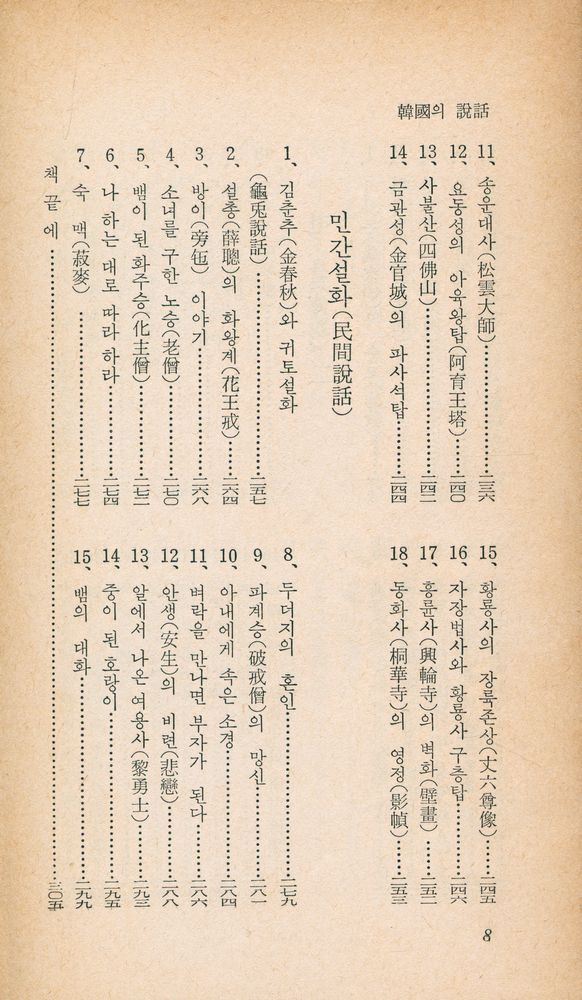 韓國의 說話
11、송운대사(松雲大師)……二三六
12、요동성의 아육왕탑(阿育王塔)……二四〇
13、사불산(四佛山)……二四二
14、금관성(金官城)의 파사석탑……二四四
15、황룡사의 장륙존상(丈六尊像)……二四五
16、자장법사와 황룡사 구층탑……二四六
17、흥륜사(興輪寺)의 벽화(壁畫)……二五二
18、동화사(桐華寺)의 영정(影幀)……二五三
민간설화(民間說話)
1、김춘추(金春秋)와 귀토설화
(龜兎說話)……二五七
2、설총(薛聰)의 화왕계(花王戒)……二六四
3、방이(旁㐌) 이야기……二六八
4、소녀를 구한 노승(老僧)……二七〇
5、뱀이 된 화주승(化主僧)……二七二
6、나 하는 대로 따라 하라……二七四
7、숙 맥(菽麥)……二七七
8、두더지의 혼인……二七九
9、파계승(破戒僧)의 망신……二八一
10、아내에게 속은 소경……二八四
11、벼락을 만나면 부자가 된다……二八六
12、안생(安生)의 비련(悲戀)……二八八
13、알에서 나온 여용사(黎勇士)……二九三
14、중이 된 호랑이……二九五
15、뱀의 대화……二九九
책 끝 에……三〇五
8